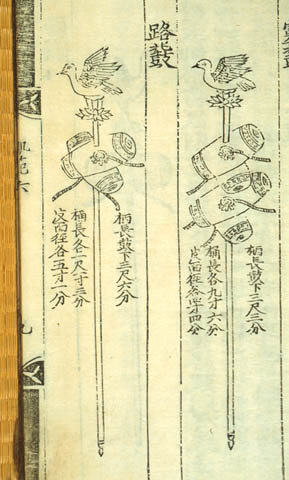 柄長鼓下三尺三分
桶長各九寸六分
皮面徑各四寸四分
路鼗
柄長鼓下三尺六分
桶長各一尺寸三分
皮面徑各五寸一分
軌範六
九